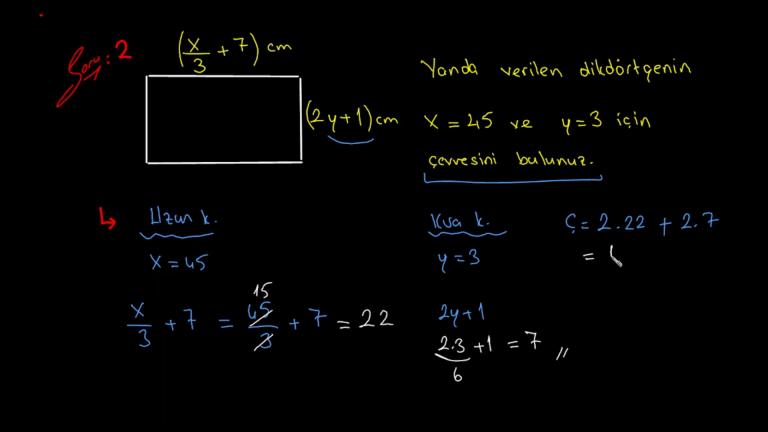 Soru: 2
(x/3 + 7) cm
(2y+1) cm
Yanda verilen dikdörtgenin
x = 45 ve y = 3 için
çevresini bulunuz.
Uzun k.
x = 45
x/3 + 7 = 45/3 + 7 = 22
15
Kısa k.
y = 3
2y+1
2.3 + 1 = 7 //
6
Ç = 2.22 + 2.7
= (